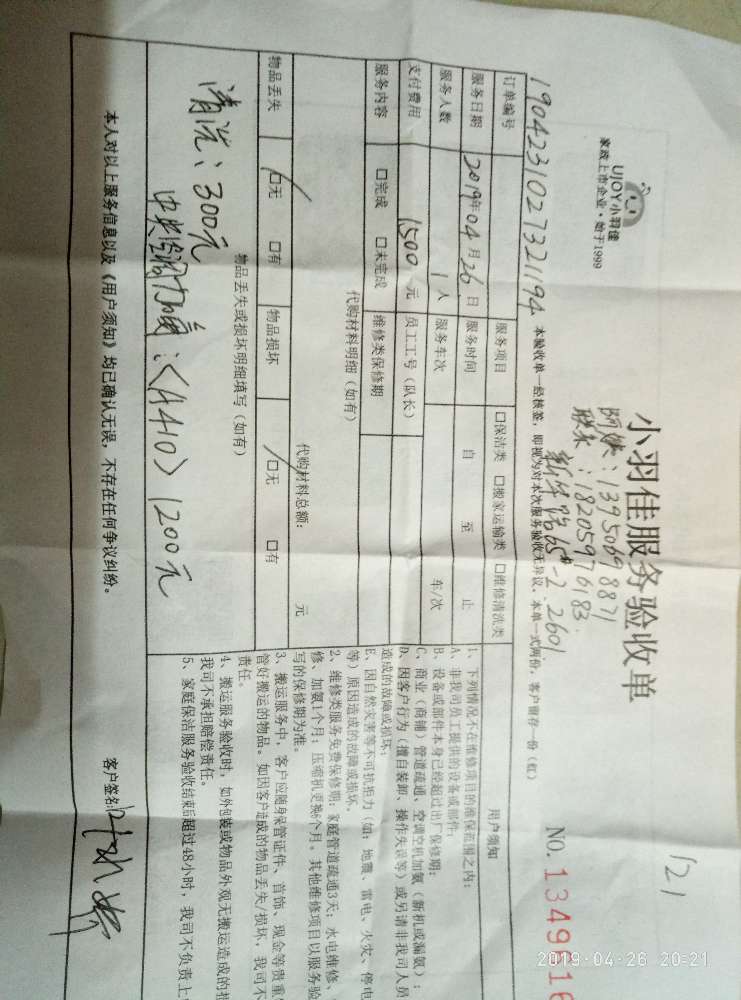 UJOY小羽佳
家政上市企业·始于1999
小羽佳服务验收单
121
NO.1349616
阿姨:13950698871
联系:18205976183
新华路65#-2.2601
1904231027321194
本验收单一经核签,即视为对本次服务验收无异议,本单一式两份,客户留存一份(红)
订单编号
服务项目 口保洁类 口搬家运输类 口维修清洗类
服务日期 2019年04月26日 服务时间 自 至 止
服务人数 1人 服务车次 车/次
支付费用 1500元 员工工号(队长)
服务内容 口完成 口未完成 维修类保修期
代购材料明细(如有)
代购材料总额: 元
物品丢失 口无 口有 物品损坏 口无 口有
物品丢失或损坏明细填写(如有)
清洗:300元
中央空调加氟:<A410>1200元
用户须知
1、下列情况不在维修项目的维保范围之内:
A、非我司员工提供的设备或部件;
B、设备或部件本身已经超过出厂保修期;
C、商业(商铺)管道疏通、空调空机加氨(新机或漏氨);
D、因客户行为(擅自装卸、操作失误等)或另请非我司人员
造成的故障或损坏;
E、因自然灾害等不可抗拒力(如:地震、雷电、火灾、停电
等)原因造成的故障或损坏。
2、维修类服务免费保修期:家庭管道疏通3天;水电维修、
修、加氨1个月;压缩机更换6个月。其他维修项目以服务验
写的保修期为准。
3、搬运服务中,客户应随身保管证件、首饰、现金等贵重
管好搬运的物品。如因客户造成的物品丢失/损坏,我司不
责任。
4、搬运服务验收时,如外包装或物品外观无搬运造成的
我司不承担赔偿责任。
5、家庭保洁服务验收结束后超过48小时,我司不负责上
本人对以上服务信息以及《用户须知》均已确认无误,不存在任何争议纠纷。
客户签名:
2019-04-26 20:21